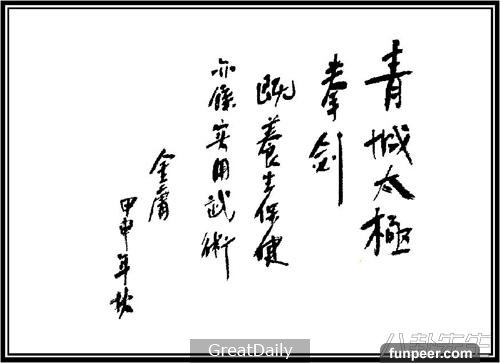 青城太極
拳劍
既養生保健
亦係實用武術
金庸
甲申年秋
八卦先生
GreatDaily
funpeer.com